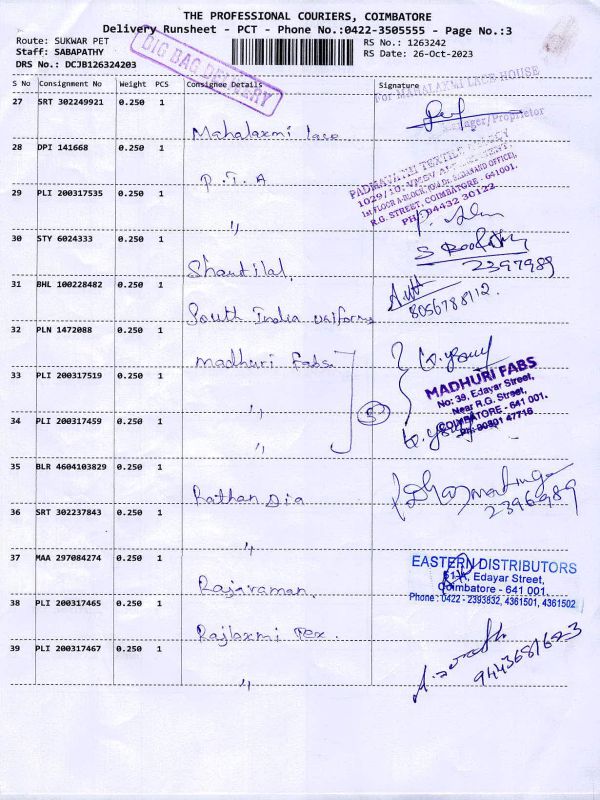 THE PROFESSIONAL COURIERS, COIMBATORE
Delivery Runsheet - PCT - Phone No.:0422-3505555 - Page No.:3
Route: SUKWAR PET
RS No.: 1263242
Staff: SABAPATHY
RS Date: 26-Oct-2023
DRS No.: DCJB126324203
BIG BAG DELIVERY
S No Consignment No Weight PCS Consignee Details Signature
For MAHALAXMI LACE HOUSE
27 SRT 302249921 0.250 1
Manager/Proprietor
Mahalaxmi lace
28 DPI 141668 0.250 1
P.T.A
PADMAVATHI TEXTILE AGENCY
R.G. STREET, COIMBATORE - 641001.
PH: 94432 30122
29 PLI 200317535 0.250 1
"
30 STY 6024333 0.250 1
2397989
Shantilal.
31 BHL 100228482 0.250 1
8056788112.
South India uniforms
32 PLN 1472088 0.250 1
madhuri Fabs.
33 PLI 200317519 0.250 1
MADHURI FABS
No: 39, Edayar Street,
Near R.G. Street,
COIMBATORE - 641 001.
"
34 PLI 200317459 0.250 1
"
35 BLR 4604103829 0.250 1
Rathan Dia
2396989
36 SRT 302237843 0.250 1
"
37 MAA 297084274 0.250 1
EASTERN DISTRIBUTORS
Edayar Street,
Coimbatore - 641 001.
Phone : 0422 - 2393832, 4361501, 4361502
Rajaraman.
38 PLI 200317465 0.250 1
Rajlaxmi Tex.
39 PLI 200317467 0.250 1
"